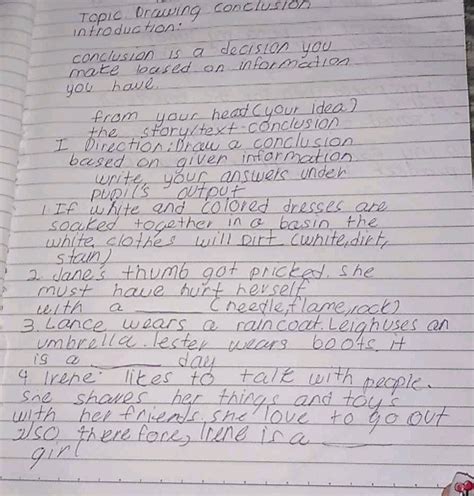 Topic Drawing conclusion
introduction:
conclusion is a decision you
make based on information
you have.
from your head (your Idea)
the story/text-conclusion
I Direction: Draw a conclusion
based on given information
write, your answers under
pupil's output
1. If white and colored dresses are
soaked together in a basin the
white clothes will Dirt (white, dirt,
stain)
2. Jane's thumb got pricked. she
must have hurt herself
with a ______ (needle, flame, rock)
3. Lance wears a raincoat. Leigh uses an
umbrella. lester wears boots. it
is a ______ day
4 Irene likes to talk with people.
she shares her things and toy's
with her friends. she love to go out
also therefore, Irene is a ______
girl